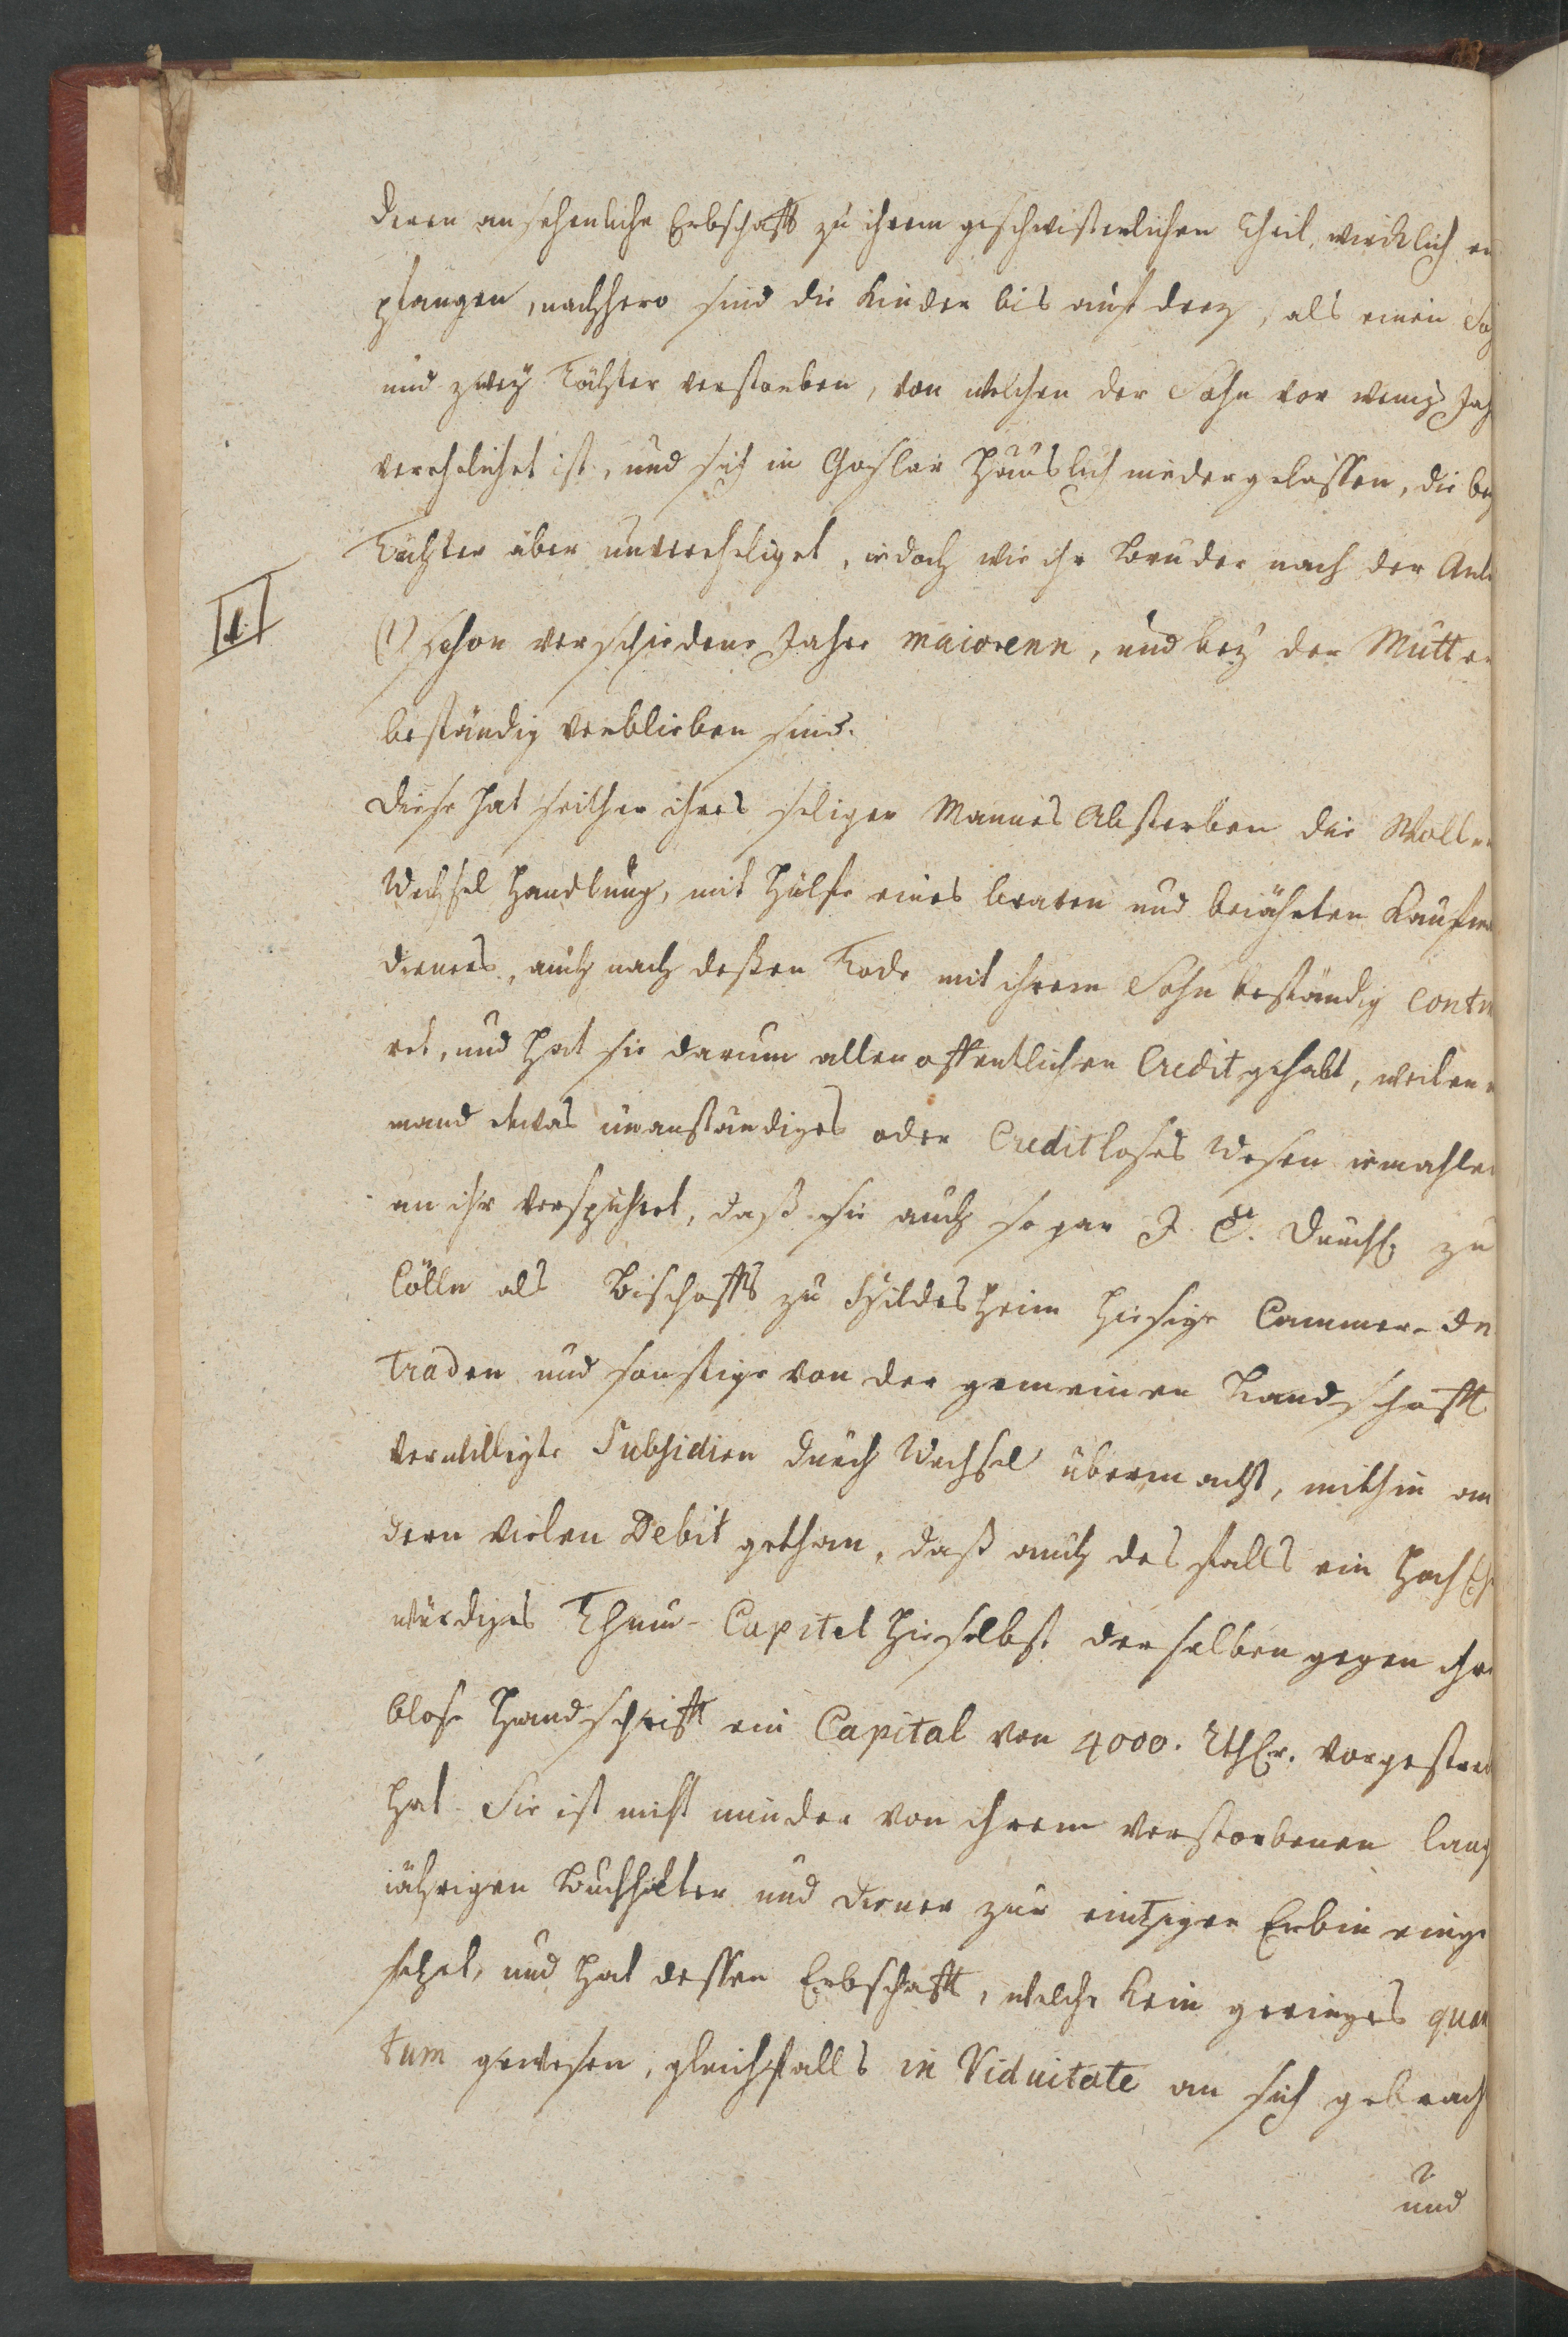 deren ansehenliche Erbschafft zu ihrem geschwisterlichen Theil, wircklich em
pfangen, nachhero sind die Kinder bis auf drey, als einen So
und zwey Töchter verstorben, von welchen der Sohn vor wenig Jah
verehelichet ist, und sich in Goslar Häuslich niedergelassen, die bey
Töchter aber unverehliget, iedoch wie ihr Bruder nach der Anl
II
(1) schon verschiedene Jahre maiorenn, und bey der Mutter
beständig verblieben sind.
Diese hat seither ihres seligen Mannes Absterben die Wollen
Wechsel Handlung, mit Hülfe eines braven und beiährten Kaufm
dieners, auch nach deßen Tode mit ihrem Sohn beständig contin
ret, und hat sie darum allen offentlichen Credit gehabt, weilen n
mand etwas unanständiges oder Creditloses Wesen iemahlen
an ihr verspühret, daß sie auch so gar J. C. Durchl. zu
Cölln als Bischoffs zu Hildesheim hiesige Cammer-In
traden und sonstige von der gemeinen Landschafft
verwilligte Subsidien durch Wechsel übermacht, mithin an
dern vielen Debit gethan, daß auch des falls ein Hoch E
würdiges Thum-Capitel hieselbst derselben gegen ihre
blose Handschrifft ein Capital von 4000. Rthlr. vorgestrec
hat. Sie ist nicht minder von ihrem verstorbenen lang
iährigen Buchhalter und Diener zur eintzigen Erbin einge
setzet, und hat dessen Erbschafft, welche kein geringes quan
tum gewesen, gleichfalls in Viduitate an sich gebrach
und